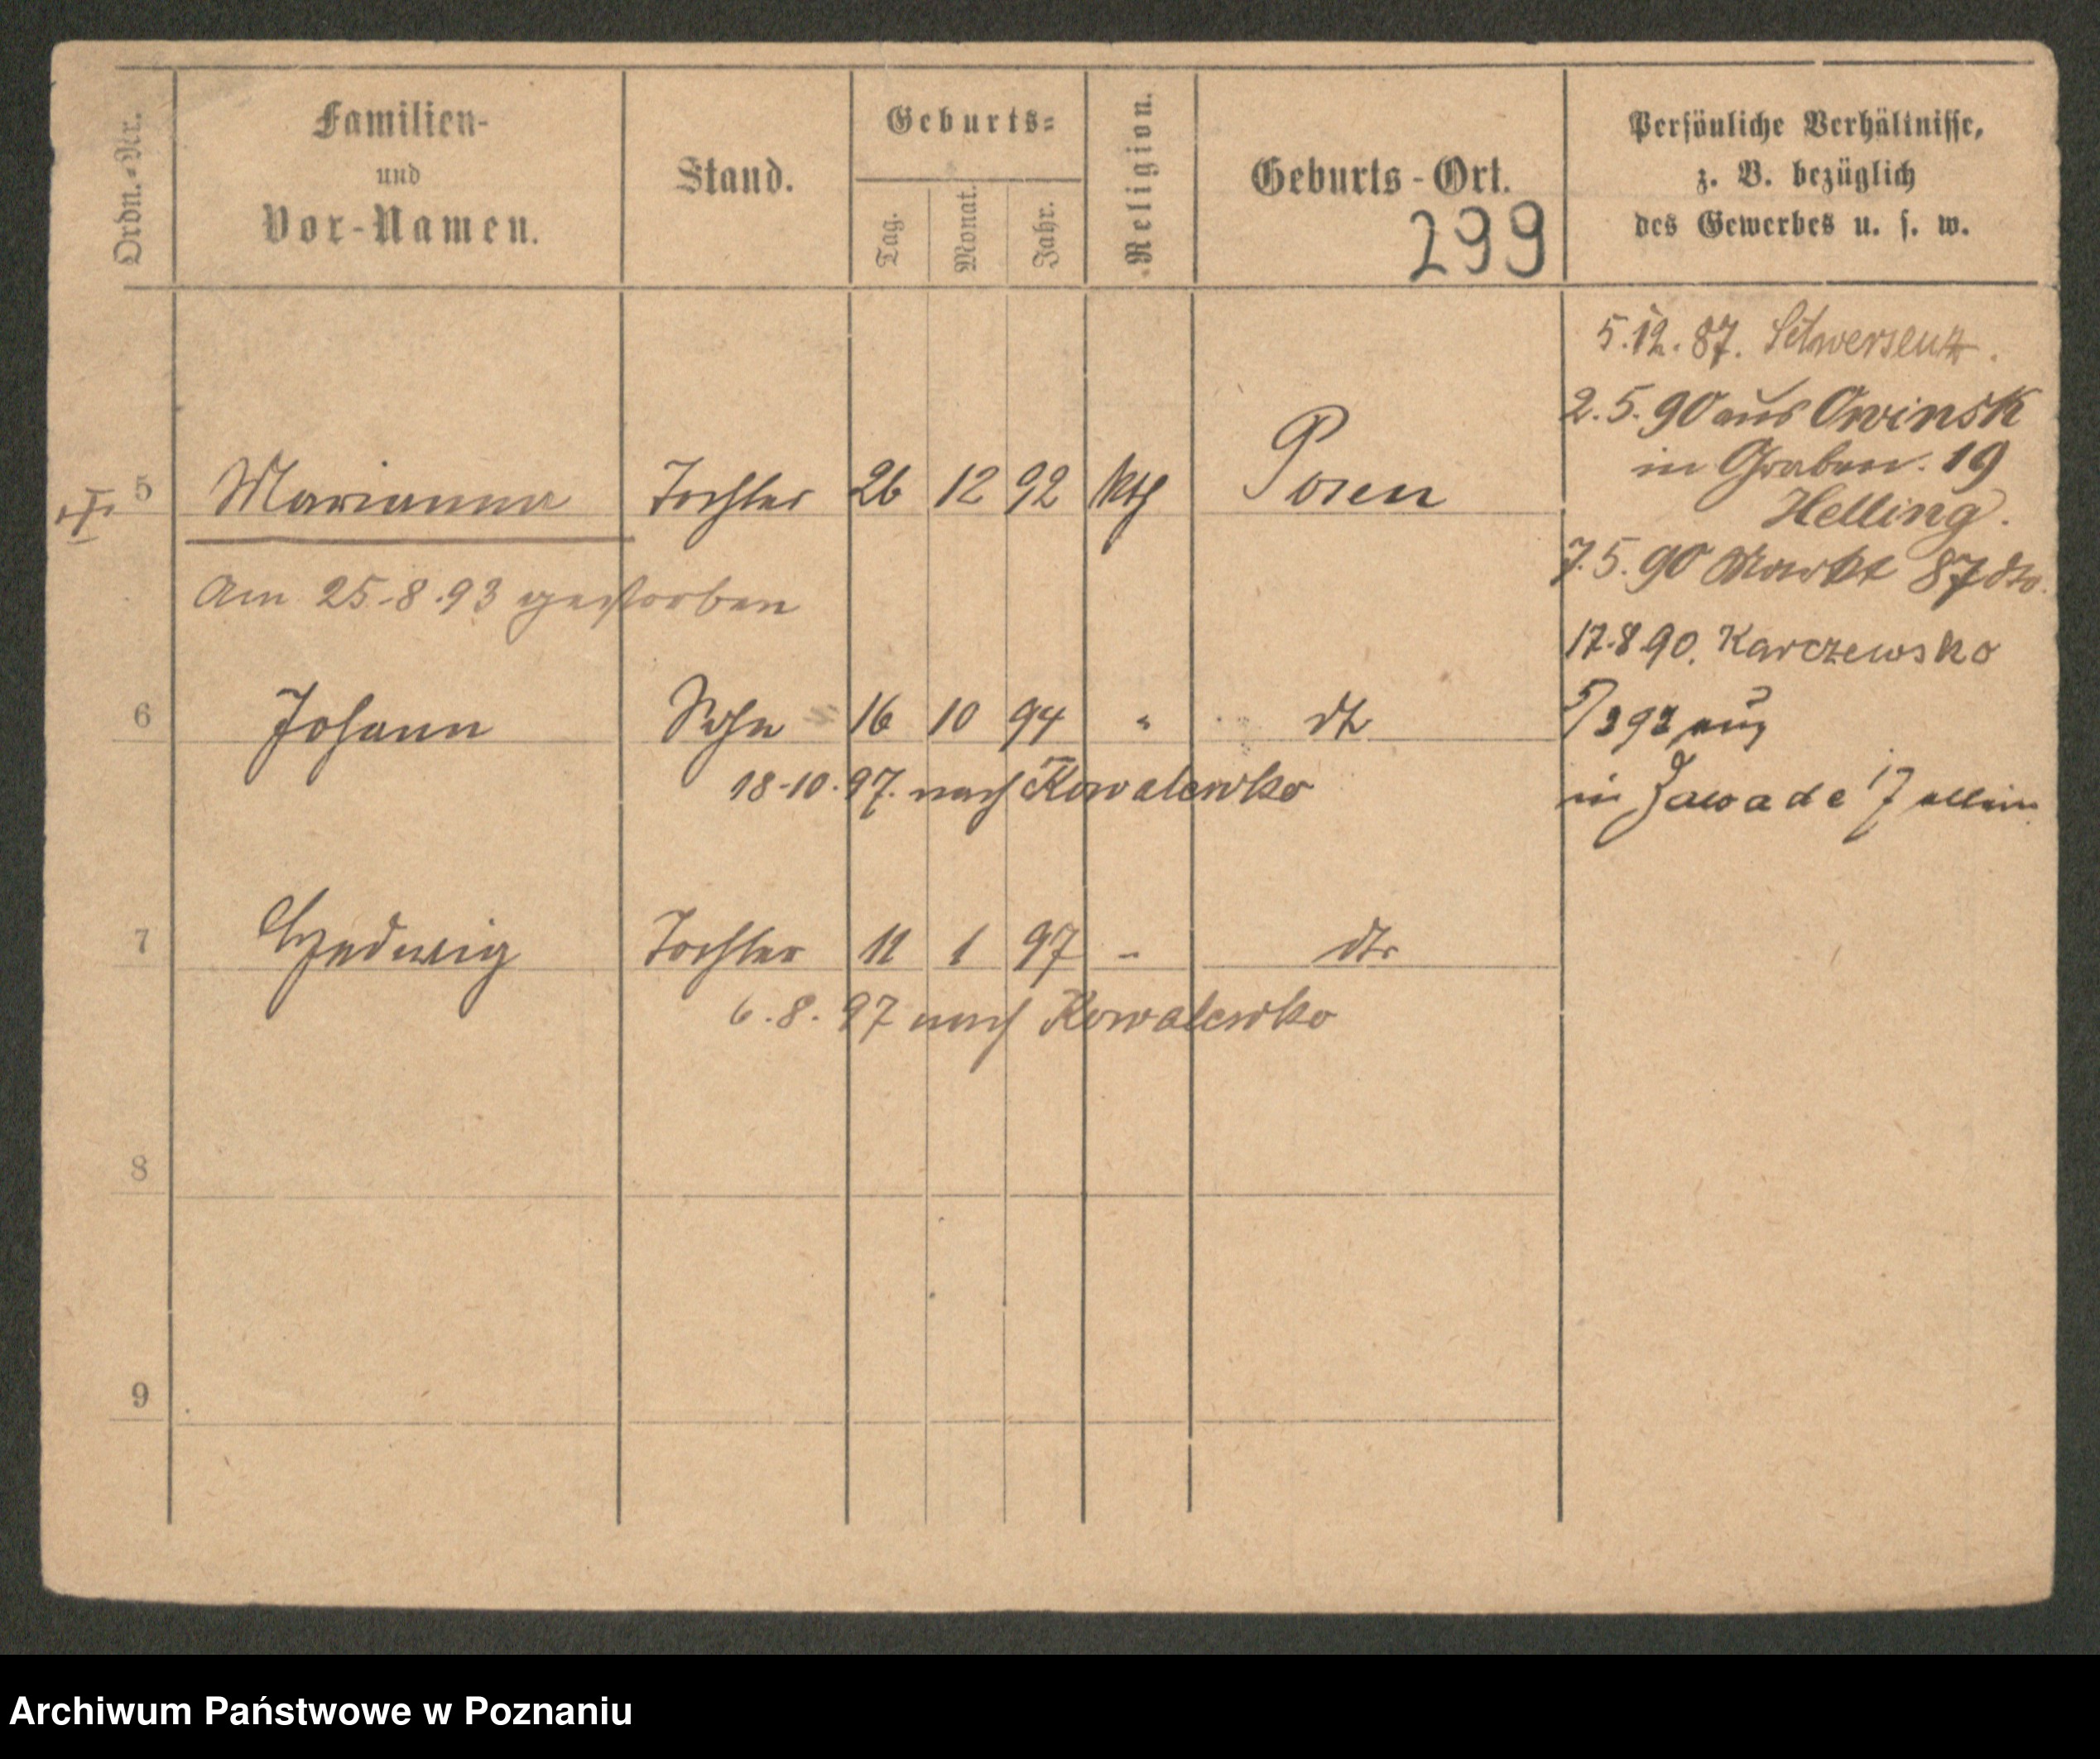 Ordn.-Nr.
Familien-
und
Vor-Namen.
Stand.
Geburts-
Tag.
Monat.
Jahr.
Religion.
Geburts-Ort.
299
Persönliche Verhältnisse,
z. B. bezüglich
des Gewerbes u. s. w.
5.12.87. Schwersenz.
2.5.90 aus Owinsk
in Graben. 19
Helling.
7.5.90 Markt 87 dto.
17.8.90. Karczewsko
in Zawade 7 allein
5 Marianna Tochter 26 12 92 kth Posen
Am 25-8.93 gestorben
6 Johann Sohn 16 10 94 " dt
18-10.97. nach Kowalewko
7 Hedwig Tochter 11 1 97 - dto
6.8.97 nach Kowalewko
8
9
Archiwum Państwowe w Poznaniu